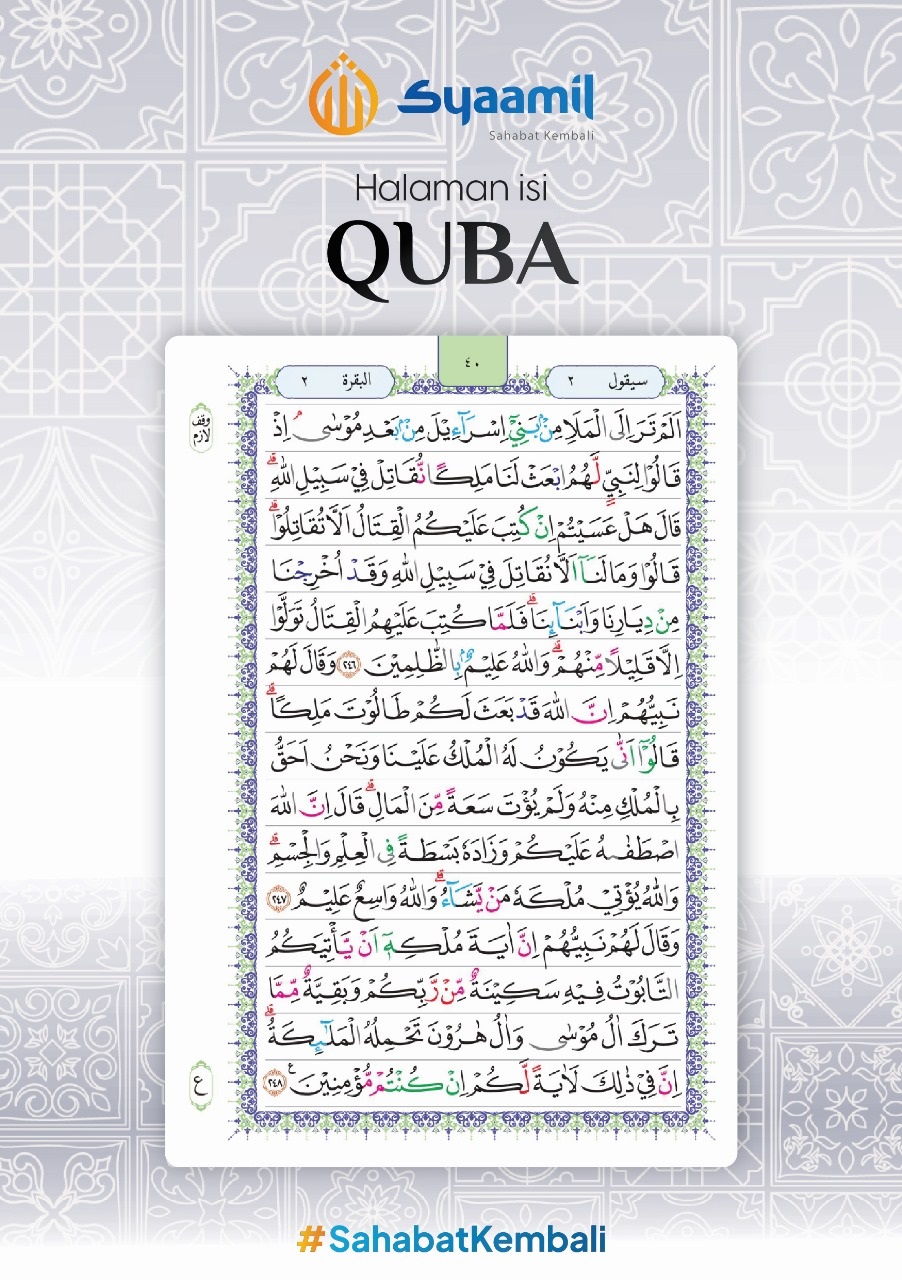 Syaamil
Sahabat Kembali
Halaman isi
QUBA
سيقول ٢
٤٠
البقرة ٢
وقف
لازم
اَلَمْ تَرَ اِلَى الْمَلَاِ مِنْۢ بَنِيْٓ اِسْرَاۤءِيْلَ مِنْۢ بَعْدِ مُوْسٰىۘ اِذْ
قَالُوْا لِنَبِيٍّ لَّهُمُ ابْعَثْ لَنَا مَلِكًا نُّقَاتِلْ فِيْ سَبِيْلِ اللّٰهِ ۗ
قَالَ هَلْ عَسَيْتُمْ اِنْ كُتِبَ عَلَيْكُمُ الْقِتَالُ اَلَّا تُقَاتِلُوْا ۗ
قَالُوْا وَمَا لَنَآ اَلَّا نُقَاتِلَ فِيْ سَبِيْلِ اللّٰهِ وَقَدْ اُخْرِجْنَا
مِنْ دِيَارِنَا وَاَبْنَاۤىِٕنَا ۗ فَلَمَّا كُتِبَ عَلَيْهِمُ الْقِتَالُ تَوَلَّوْا
اِلَّا قَلِيْلًا مِّنْهُمْ ۗ وَاللّٰهُ عَلِيْمٌۢ بِالظّٰلِمِيْنَ ٢٤٦ وَقَالَ لَهُمْ
نَبِيُّهُمْ اِنَّ اللّٰهَ قَدْ بَعَثَ لَكُمْ طَالُوْتَ مَلِكًا ۗ
قَالُوْٓا اَنّٰى يَكُوْنُ لَهُ الْمُلْكُ عَلَيْنَا وَنَحْنُ اَحَقُّ
بِالْمُلْكِ مِنْهُ وَلَمْ يُؤْتَ سَعَةً مِّنَ الْمَالِ ۗ قَالَ اِنَّ اللّٰهَ
اصْطَفٰىهُ عَلَيْكُمْ وَزَادَهٗ بَسْطَةً فِى الْعِلْمِ وَالْجِسْمِ ۗ
وَاللّٰهُ يُؤْتِيْ مُلْكَهٗ مَنْ يَّشَاۤءُ ۗ وَاللّٰهُ وَاسِعٌ عَلِيْمٌ ٢٤٧
وَقَالَ لَهُمْ نَبِيُّهُمْ اِنَّ اٰيَةَ مُلْكِهٖٓ اَنْ يَّأْتِيَكُمُ
التَّابُوْتُ فِيْهِ سَكِيْنَةٌ مِّنْ رَّبِّكُمْ وَبَقِيَّةٌ مِّمَّا
تَرَكَ اٰلُ مُوْسٰى وَاٰلُ هٰرُوْنَ تَحْمِلُهُ الْمَلٰۤىِٕكَةُ ۗ
اِنَّ فِيْ ذٰلِكَ لَاٰيَةً لَّكُمْ اِنْ كُنْتُمْ مُّؤْمِنِيْنَ ࣖ ٢٤٨
ع
#SahabatKembali